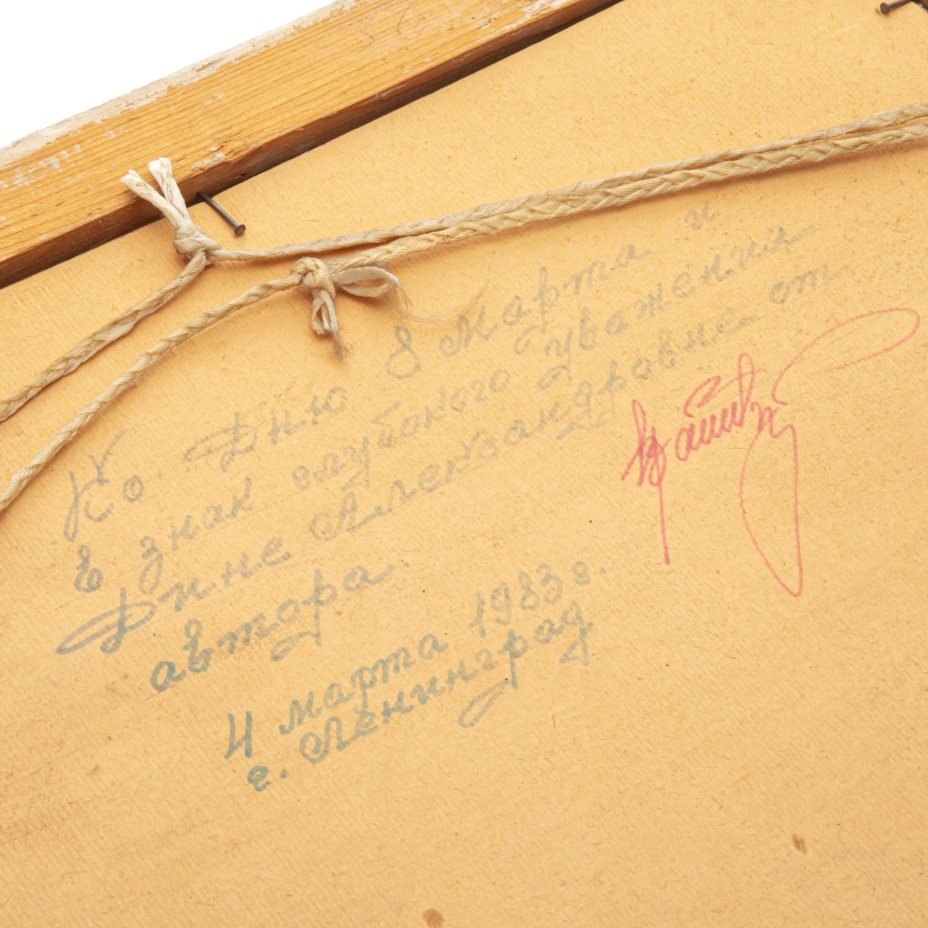 Ко Дню 8 Марта и
в знак глубокого уважения
Дине Александровне от
автора.
4 марта 1983 г.
г. Ленинград